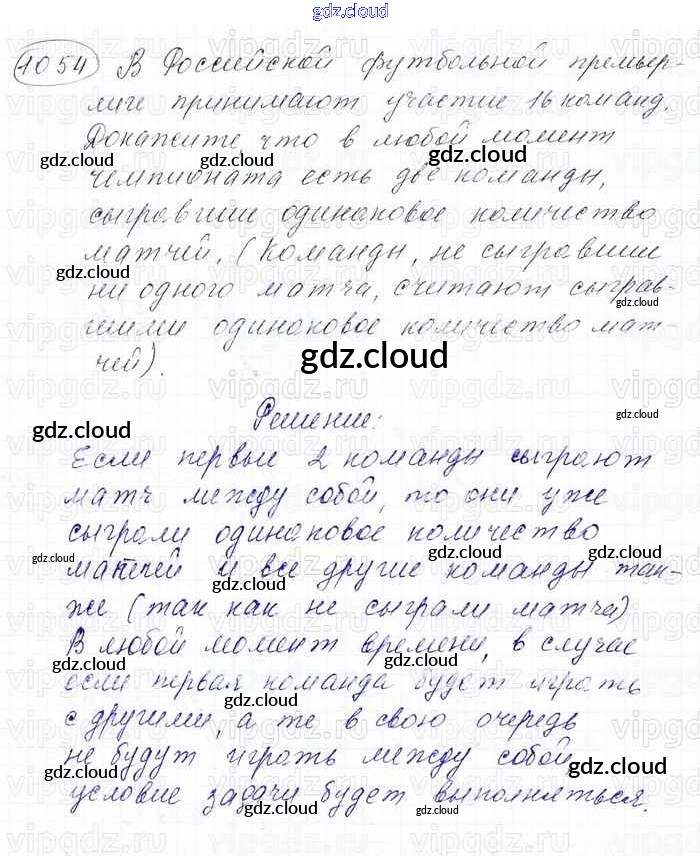 gdz.cloud
1054 В Российской футбольной премьер-
лиге принимают участие 16 команд.
Докажите что в любой момент
gdz.cloud gdz.cloud gdz.cloud
чемпионата есть две команды,
сыгравшии одинаковое количиство
матчей, (Команды, не сыгравшии
gdz.cloud
ни одного матча, считают сыграв-
gdz.cloud
шими одинаковое количиство мат-
чей).
gdz.cloud
Решение:
gdz.cloud
gdz.cloud
Если первые 2 команды сыграют
матч между собой, то они уже
сыграли одинаковое количество
gdz.cloud gdz.cloud gdz.cloud
матчей и все другие команды так-
же (так как не сыграли матчей)
В любой момент времени, в случае
gdz.cloud gdz.cloud
если первая команда будет играть
gdz.cloud
с другими, а те в свою очередь
не будут играть между собой,
gdz.cloud gdz.cloud
условие задачи будет выполняться.